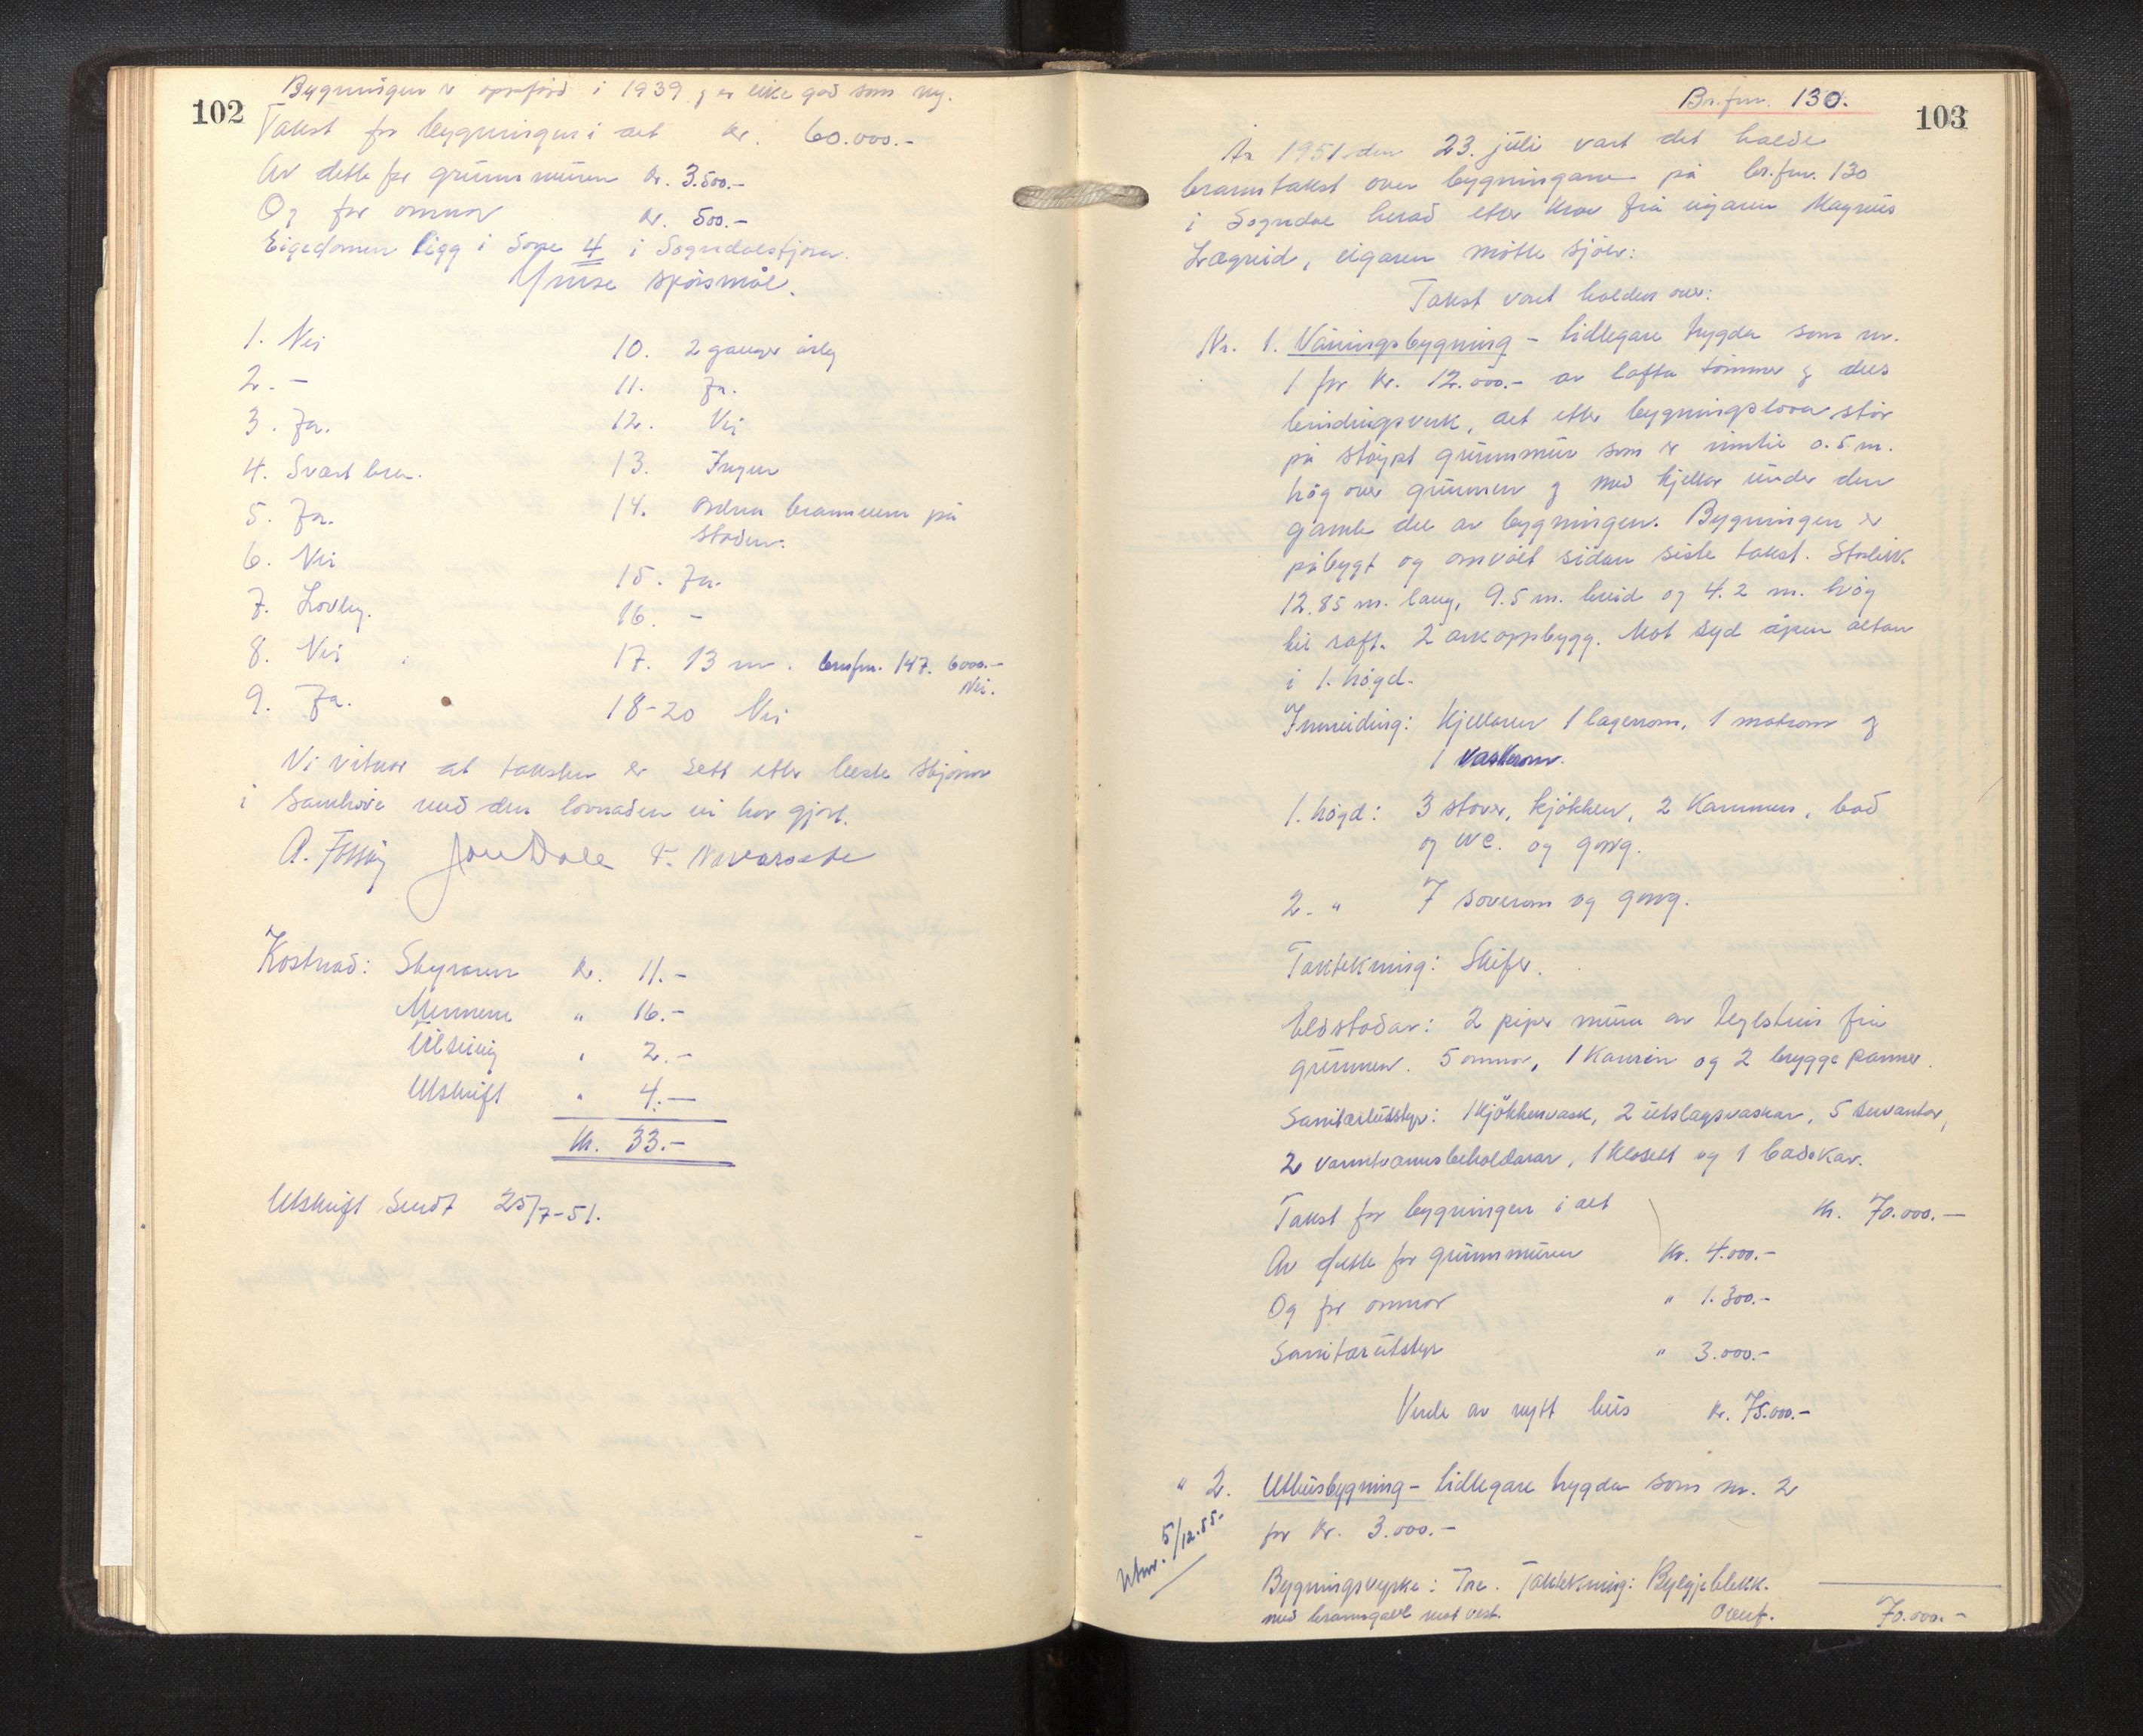 102
Bygningen er oppførd i 1939 og er like god som ny.
Takst for bygningen i alt kr. 60.000.-
Av dette for grunnmuren kr. 3.500.-
Og for omnar kr. 500.-
Eigedomen ligg i Sone 4 i Sogndalsfjøra.
Ymse spörsmål.
1. Nei
2. -
3. Ja.
4. Svært bra.
5. Ja.
6. Nei
7. Lovleg.
8. Nei
9. Ja.
10. 2 ganger årleg
11. Ja.
12. Nei
13. Ingen
14. Ordna brannvern på
staden.
15. Ja.
16. -
17. 13 m. br.fnr. 147. 6000.-
Nei.
18-20 Nei
Vi vitnar at taksten er sett etter beste skjønn
i samhøve med den lovnaden vi har gjort.
A. Fossøy Jon Dale T. Navarsete
Kostnad: Styraren kr. 11.-
Mennene " 16.-
Tilseing " 2.-
Utskrift " 4.-
Kr. 33.-
Utskrift Sendt 25/7-51.
103
Br.fnr. 130.
År 1951 den 23. juli vart det halde
branntakst over bygningane på br.fnr. 130
i Sogndal herad etter krav frå eigaren Magnus
Lægreid, eigaren møtte sjølv:
Takst vart halden over:
Nr. 1. Våningsbygning - tidlegare trygda som nr.
1 for kr. 12.000.- av lafta tømmer og dels
bindingsverk, alt etter bygningslova, står
på støypt grunnmur som er rimlie 0.5 m.
høg over grunnen og med kjellar under den
gamle del av bygningen. Bygningen er
påbygt og omvølt sidan siste takst. Storleik
12.85 m. lang, 9.5 m. breid og 4.2 m. høg
til raft. 2 arkoppbygg. Mot syd åpen altan
i 1. høgd.
Innreiding: Kjellaren 1 lagerrom, 1 matrom og
1 vaskerom.
1. høgd: 3 stover, kjøkken, 2 kammers, bad
og WC. og gang.
2. " 7 soverom og gang.
Taktekning: Skifer.
Eldstadar: 2 piper mura av teglstein frå
grunnen. 5 omnar, 1 kamin og 2 bryggepanner.
Sanitærutstyr: 1 kjøkkenvask, 2 utslagsvaskar, 5 servantar,
2 varmtvannsbeholdarar, 1 klosett og 1 badekar.
Takst for bygningen i alt kr. 70.000.-
Av dette for grunnmuren kr. 4.000.-
Og for omnar " 1.300.-
Sanitærutstyr " 3.000.-
Verde av nytt hus kr. 75.000.-
" 2. Uthusbygning - tidlegare trygda som nr. 2
for kr. 3.000.-
5/12.55-
Bygningsvyrke: Tre. Taktekning: Bylgjeblekk.
med branngavl mot vest.
Overf. 70.000.-